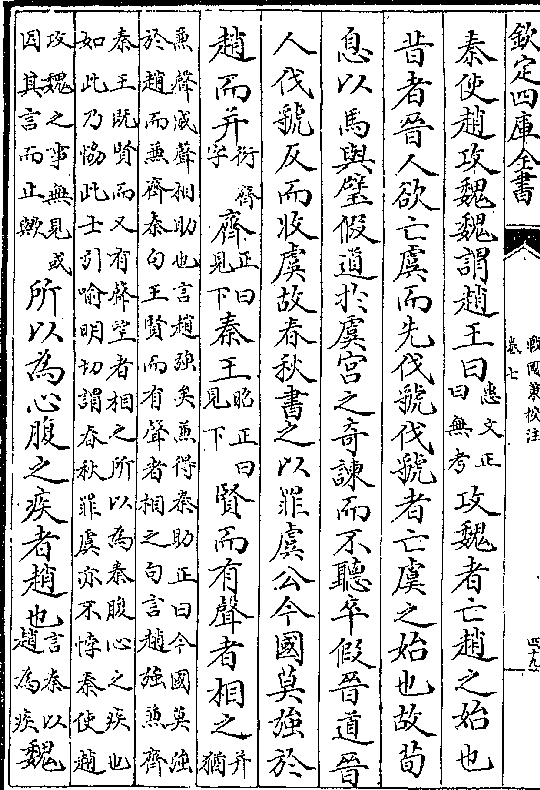 欽定四庫全書
戰國策校注
卷七
四十九
秦使趙攻魏魏謂趙王曰惠文正曰無考攻魏者亡趙之始也
昔者晉人欲亡虞而先伐虢伐虢者亡虞之始也故荀
息以馬與璧假道於虞宮之奇諫而不聽卒假晉道晉
人伐虢反而收虞故春秋書之以罪虞公今國莫強於
趙而并衍齊字齊正曰見下秦王昭正曰見下賢而有聲者相之并猶
兼聲威聲相助也言趙強矣兼得秦助正曰今國莫強
於趙而兼齊秦句王賢而有聲者相之句言趙強兼齊
秦王既賢而又有聲望者相之所以為秦腹心之疾也
如此乃恊此士引喻明切謂春秋罪虞亦不悖秦使趙
攻魏之事無見或因其言而止歟所以為心腹之疾者趙也言秦以趙為疾魏